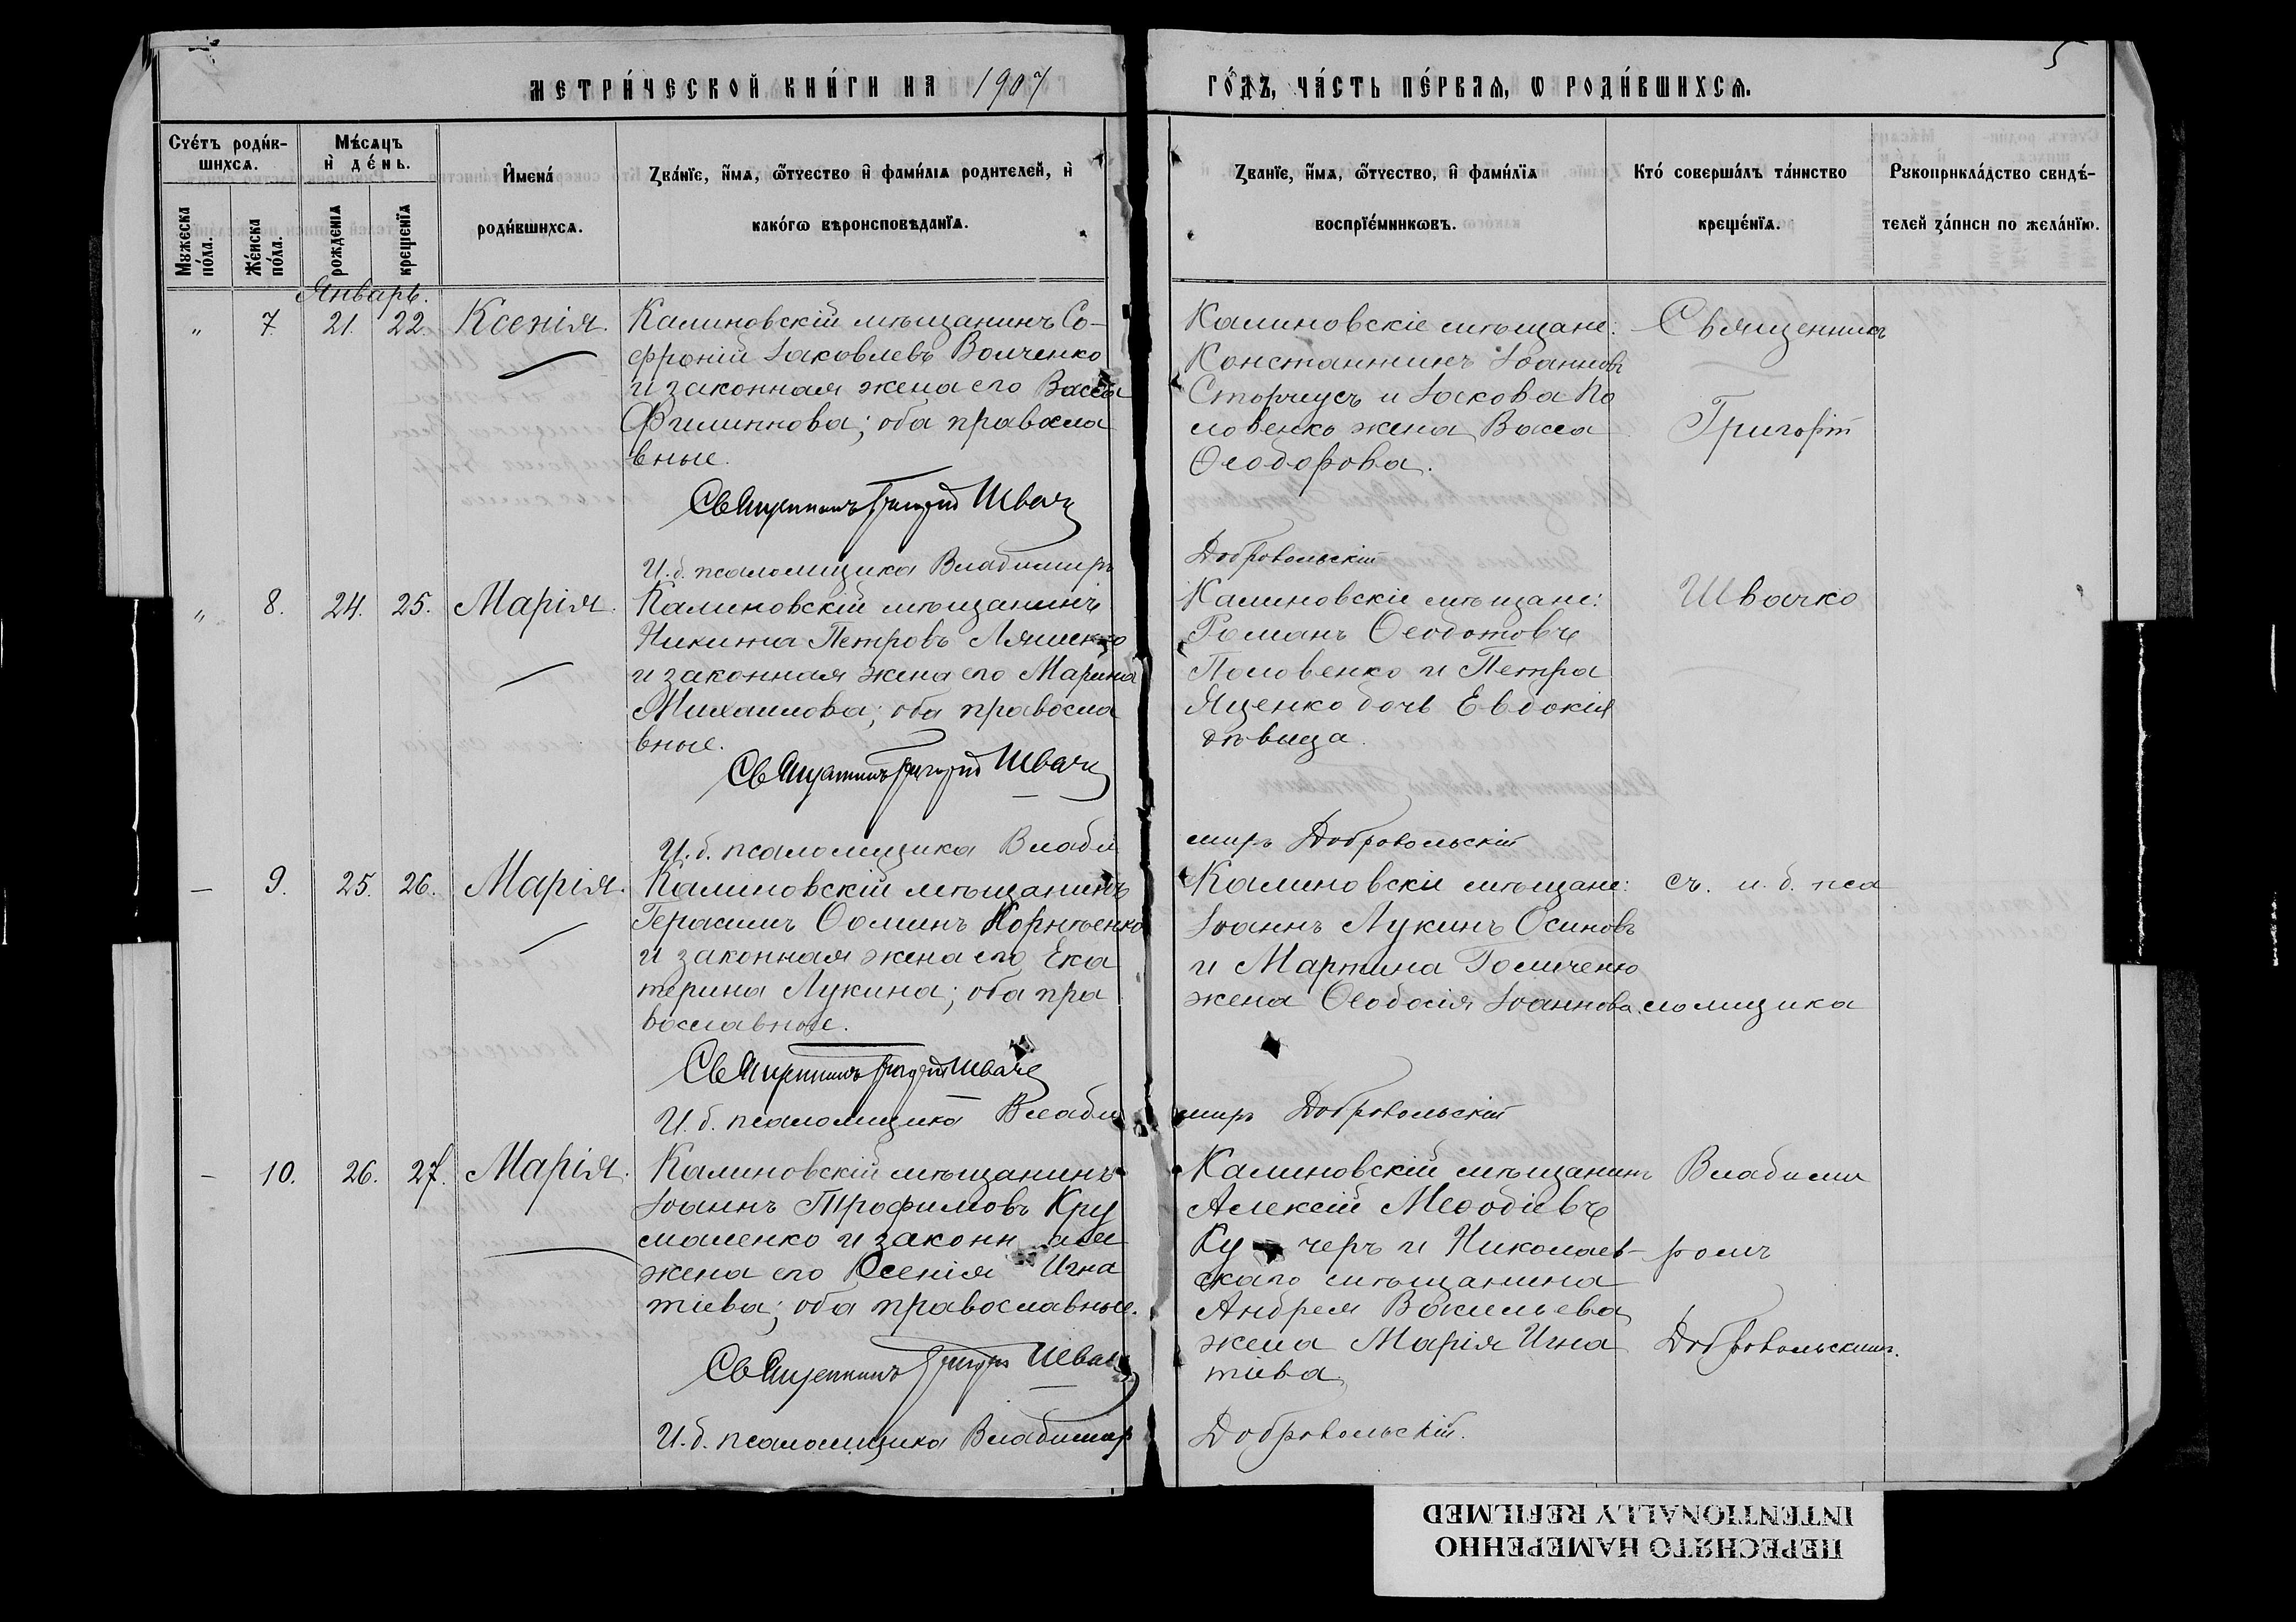 МЕТРИ́ЧЕСКОЙ КНИ́ГИ НА 1907
ГО́ДЪ, ЧА́СТЬ ПЕ́РВАЯ, Ѡ РОДИ́ВШИХСЯ.
5
Сче́тъ роди́в-
шихсѧ.
Мѣ́сѧцъ
и҆ де́нь.
И҆мена́
роди́вшихсѧ.
Зва́нїе, и҆́мѧ, ѻ҆́тчество и҆ фами́лїѧ родителей, и҆
како́гѡ вѣроисповѣданїѧ.
Зва́нїе, и҆́мѧ, ѻ҆́тчество, и҆ фами́лїѧ
воспрїе́мникѡвъ.
Кто́ соверша́лъ та́инство
креще́нїѧ.
Рꙋкоприкла́дство свидѣ́-
телей за́писи по жела́нїю.
Мꙋжеска
по́ла.
Же́нска
по́ла.
рожденїѧ
крещенїѧ
Январь.
" 7 21. 22. Ксенія.
Калиновскій мѣщанинъ Со-
фроній Іаковлевъ Волченко
и законная жена его Васса
Филиппова; оба правосла
вные.
Священникъ Григорій Швач
И. д. псаломщика Владимиръ
Калиновскіе мѣщане:
Константинъ Іоанновъ
Сторчусъ и Іакова По
ловенко жена Васса
Ѳеодорова.
Добровольскій
Священникъ
Григорій
" 8. 24. 25. Марія.
Калиновскій мѣщанинъ
Никита Петровъ Ляшенко
и законная жена его Марина
Михаилова; оба правосла
вные.
Священникъ Григорій Швач
И. д. псаломщика Влади
Калиновскіе мѣщане:
Романъ Ѳеодотовъ
Половенко и Петра
Яценко дочь Евдокія
дѣвица.
миръ Добровольскій
Швачко
— 9. 25. 26. Марія.
Калиновскій мѣщанинъ
Герасимъ Ѳоминъ Корнѣенко
и законная жена его Ека
терина Лукина; оба пра
вославные.
Священникъ Григорій Швач
И. д. псаломщика Влади
Калиновскіе мѣщане:
Іоаннъ Лукинъ Осиповъ
и Мартина
жена Ѳеодосія Іоаннова.
миръ Добровольскій
съ. и. д. пса
ломщика
— 10. 26. 27. Марія.
Калиновскій мѣщанинъ
Іоаннъ Трофимовъ Кру
маленко и законн ая
жена его Ксенія Игна
тіева; оба православные.
Священникъ Григорій Швач
И. д. псаломщика Владимир
Калиновскій мѣщанинъ
Алексій Меѳодіевъ
Ку черъ и Николаев-
скаго мѣщанина
Андрея Васильева
жена Марія Игна
тіева.
Добровольскій.
Владими
ромъ
Добровольскимъ.
ПЕРЕСНЯТО НАМЕРЕННО
INTENTIONALLY REFILMED